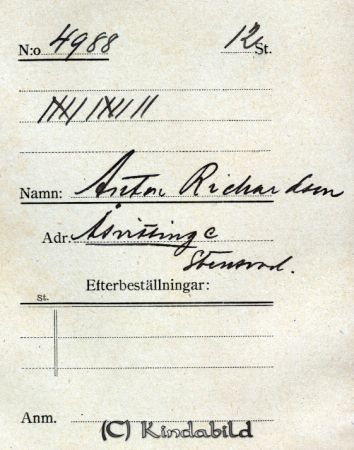 N:o 4988 12 St.
Namn: Anton Richardson
Adr. Åsvissinge
Stensvad.
Efterbeställningar:
St.
Anm.
(C) Kindabild